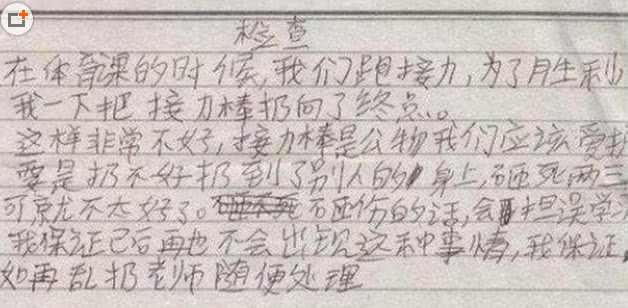 检查
在体育课的时候,我们跑接力,为了胜利
我一下把接力棒扔向了终点。
这样非常不好,接力棒是公物我们应该爱护
要是扔不好扔到了别人的身上,砸死两三
可就不太好了。砸伤的话,会担误学习
我保证已后再也不会出现这种事情,我保证,
如再乱扔老师随便处理